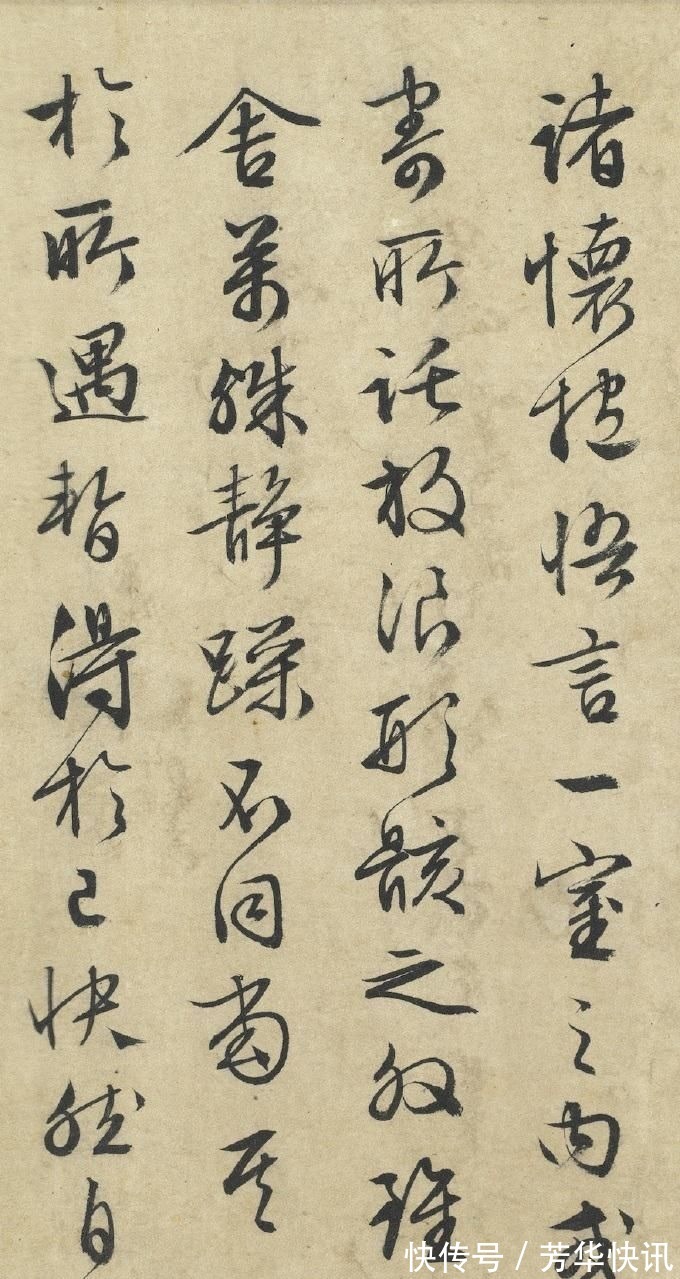 諸懷抱悟言一室之內或
寄所託放浪形骸之外雖
舍萬殊靜躁不同當其
於所遇暫得於己快然自
快传号 / 芳华快讯